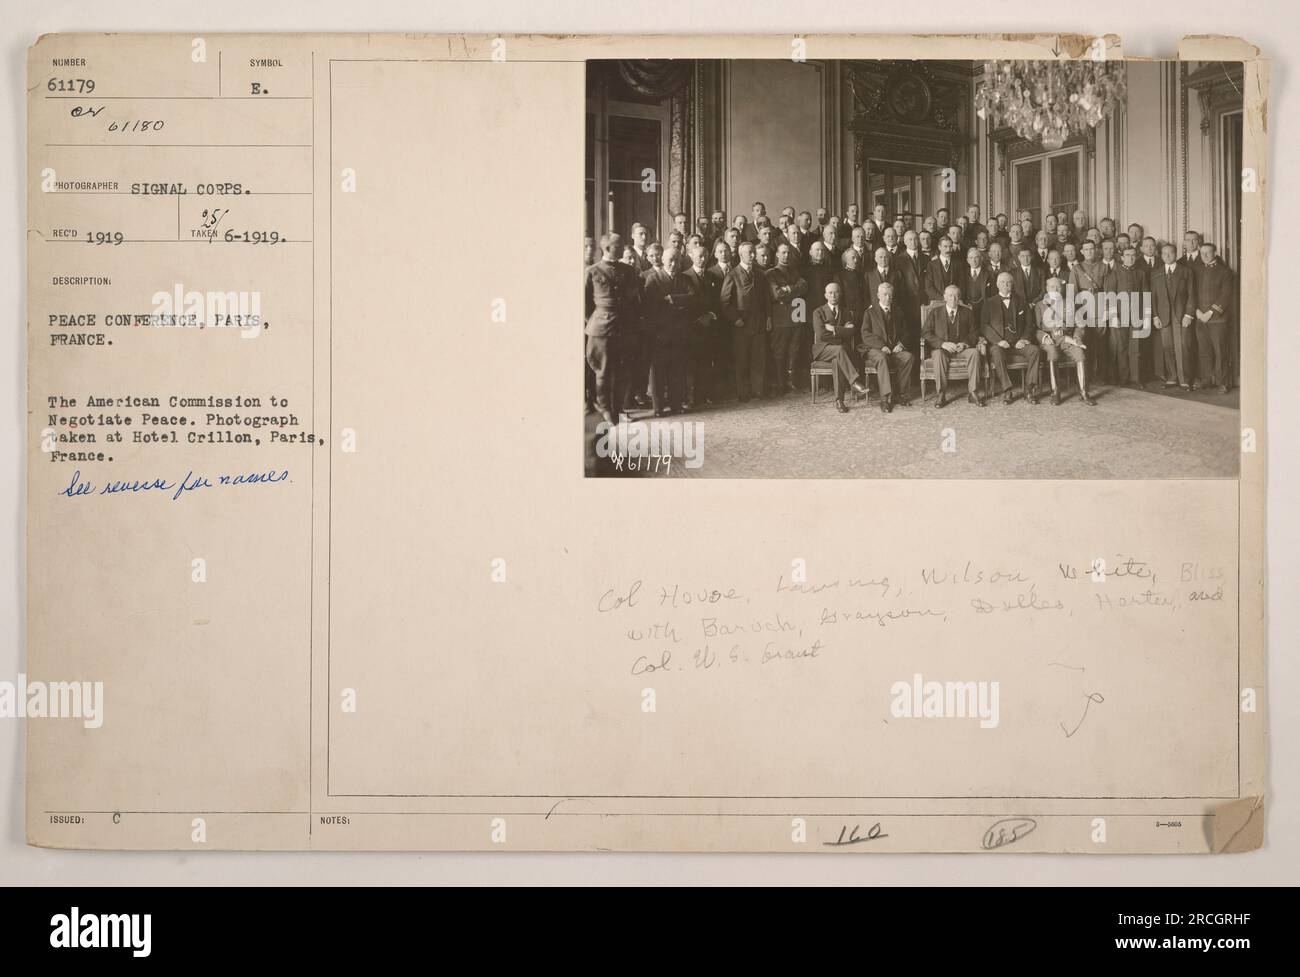 NUMBER
61179
or
61180
SYMBOL
E.
PHOTOGRAPHER SIGNAL CORPS.
REC'D 1919
25/
TAKEN 6-1919.
DESCRIPTION:
PEACE CONFERENCE, PARIS,
FRANCE.
The American Commission to
Negotiate Peace. Photograph
taken at Hotel Crillon, Paris,
France.
See reverse for names.
ISSUED: C
NOTES:
61179
Col House, Lansing, Wilson, White, Bliss,
with Baruch, Grayson, Dulles, Harter, and
Col. U. S. Grant
160
185
3—5605
alamy
a
alamy
Image ID: 2RCGRHF
www.alamy.com